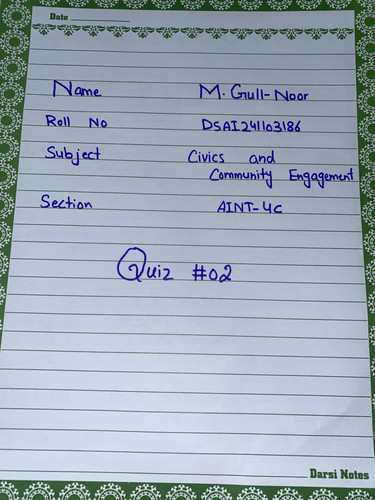 Date
Name M. Gull-Noor
Roll No DSAI241103186
Subject Civics and
Community Engagement
Section AINT-4C
Quiz #02
Darsi Notes